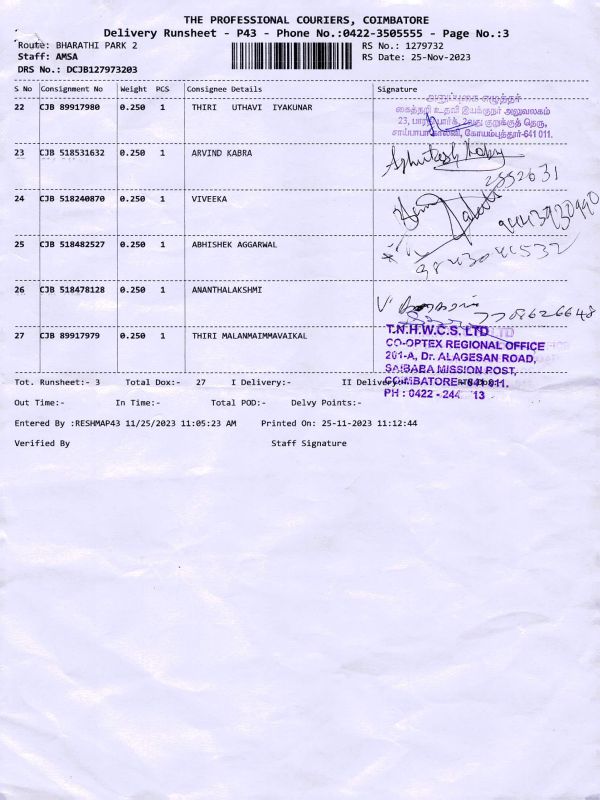 THE PROFESSIONAL COURIERS, COIMBATORE
Delivery Runsheet - P43 - Phone No.:0422-3505555 - Page No.:3
Route: BHARATHI PARK 2 RS No.: 1279732
Staff: AMSA RS Date: 25-Nov-2023
DRS No.: DCJB127973203
S No Consignment No Weight PCS Consignee Details Signature
22 CJB 89917980 0.250 1 THIRI UTHAVI IYAKUNAR
அனுப்புகை எழுத்தர்
கைத்தறி உதவி இயக்குநர் அலுவலகம்
23, பாரதி பார்க், 2வது குறுக்குத் தெரு,
சாய்பாபா காலனி, கோயம்புத்தூர்-641 011.
23 CJB 518531632 0.250 1 ARVIND KABRA Ashutosh Kabra
2552631
24 CJB 518240870 0.250 1 VIVEEKA 9443930990
25 CJB 518482527 0.250 1 ABHISHEK AGGARWAL
26 CJB 518478128 0.250 1 ANANTHALAKSHMI
7708626648
27 CJB 89917979 0.250 1 THIRI MALANMAIMMAVAIKAL
T.N.H.W.C.S. LTD
CO-OPTEX REGIONAL OFFICE
201-A, Dr. ALAGESAN ROAD,
SAIBABA MISSION POST,
COIMBATORE-641 011.
PH : 0422 - 244 13
Tot. Runsheet:- 3 Total Dox:- 27 I Delivery:- II Delivery
Out Time:- In Time:- Total POD:- Delvy Points:-
Entered By :RESHMAP43 11/25/2023 11:05:23 AM Printed On: 25-11-2023 11:12:44
Verified By Staff Signature